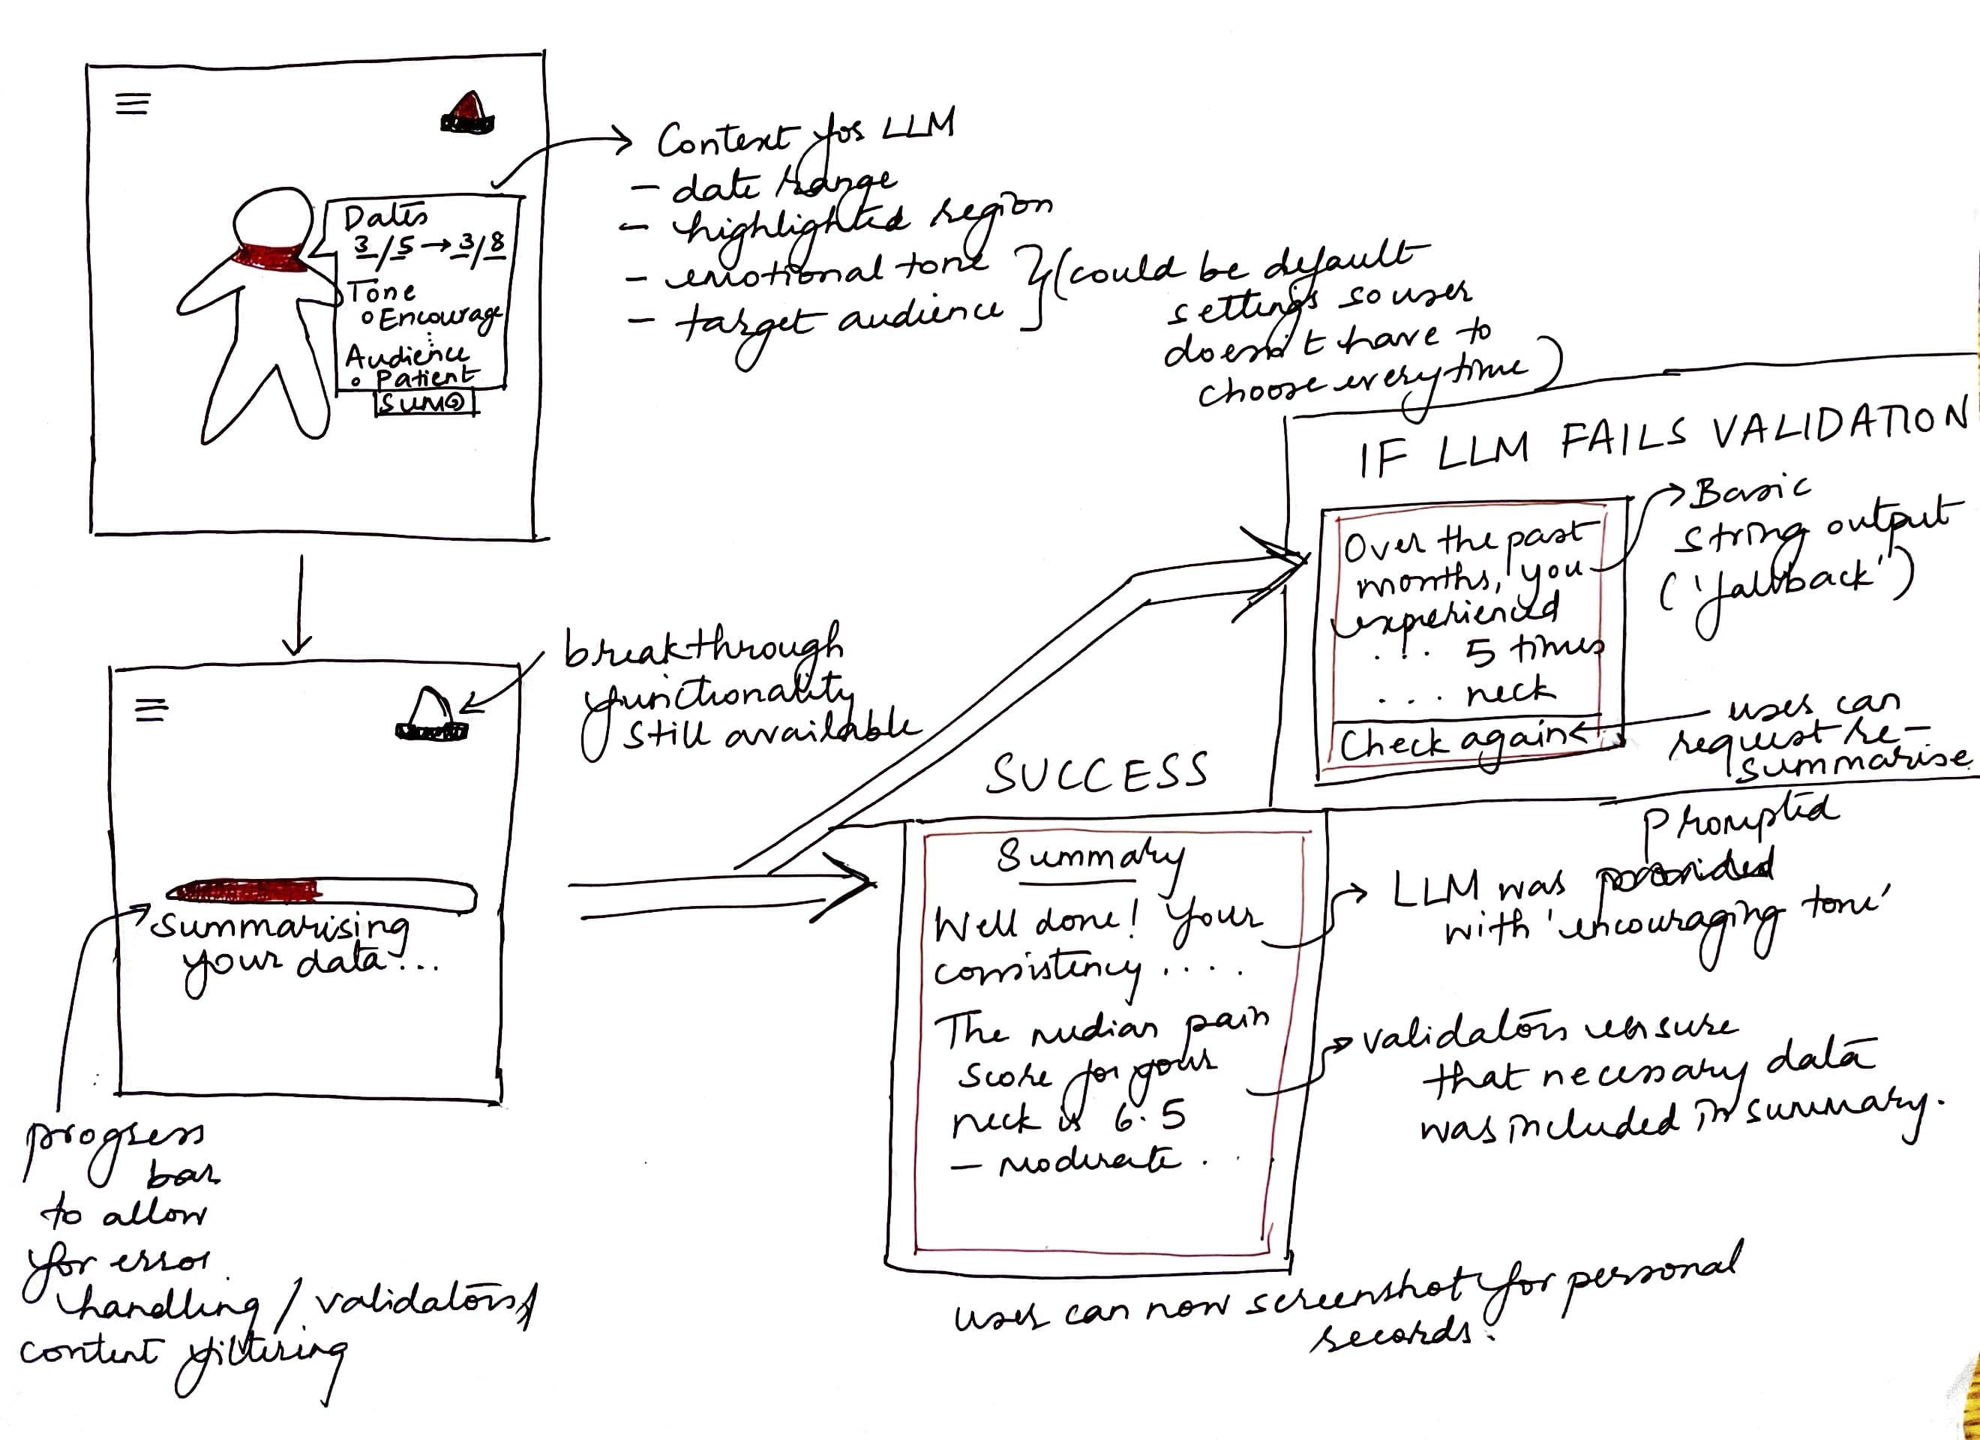 Context for LLM
- date range
- highlighted region
- emotional tone
- target audience
(could be default
settings so user
doesn't have to
choose everytime)
Dates
3/5 → 3/8
Tone
o Encourage
Audience
o Patient
SUM
breakthrough
functionality
still available
Summarising
your data...
progress
bar
to allow
for error
handling / validators/
content filtering
IF LLM FAILS VALIDATION
Over the past
months, you
experienced
... 5 times
... neck
Check again
Basic
string output
('fallback')
users can
request re-
summarise
SUCCESS
Summary
Well done! Your
consistency ....
The median pain
score for your
neck is 6.5
- moderate ..
Prompted
LLM was
with 'encouraging tone'
validators ensure
that necessary data
was included in summary.
user can now screenshot for personal
records.